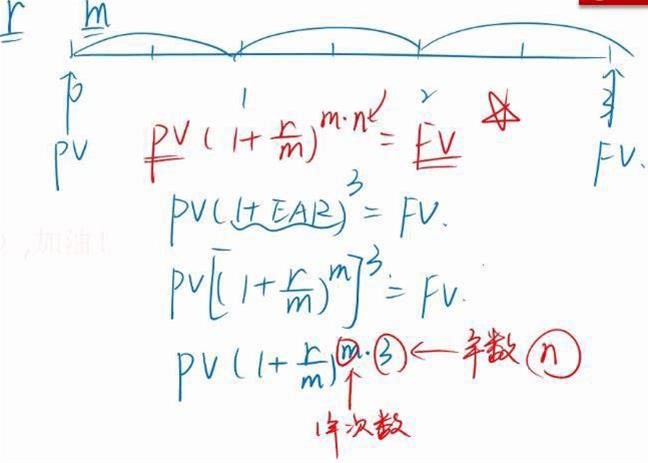 r m
0 1 2 3
PV FV.
PV(1+r/m)^{m·n} = FV
PV(1+EAR)^3 = FV.
，加油！
PV[(1+r/m)^m]^3 = FV.
PV(1+r/m)^{m·3} ← 年数 n
1年次数